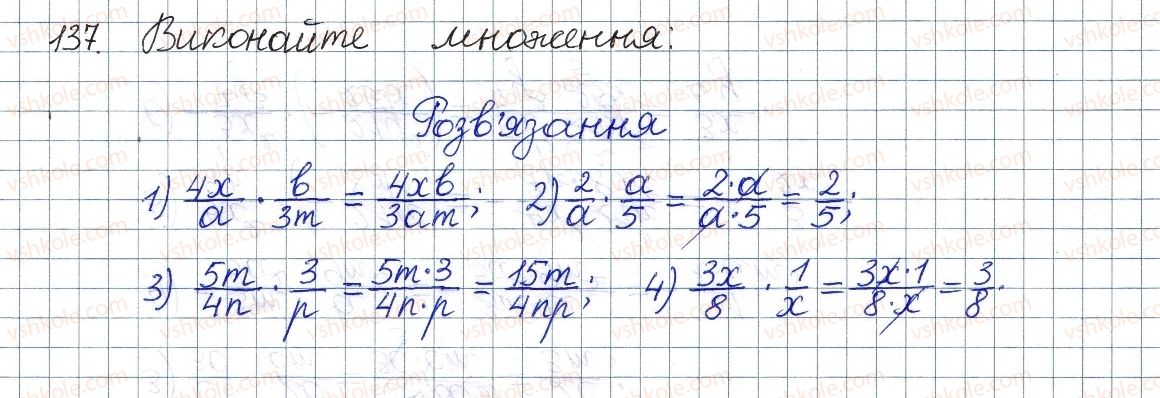 137. Виконайте множення:
Розв'язання
1) 4x/a · b/3m = 4xb/3am; 2) 2/a · a/5 = 2·a/a·5 = 2/5;
3) 5m/4n · 3/p = 5m·3/4n·p = 15m/4np; 4) 3x/8 · 1/x = 3x·1/8·x = 3/8.